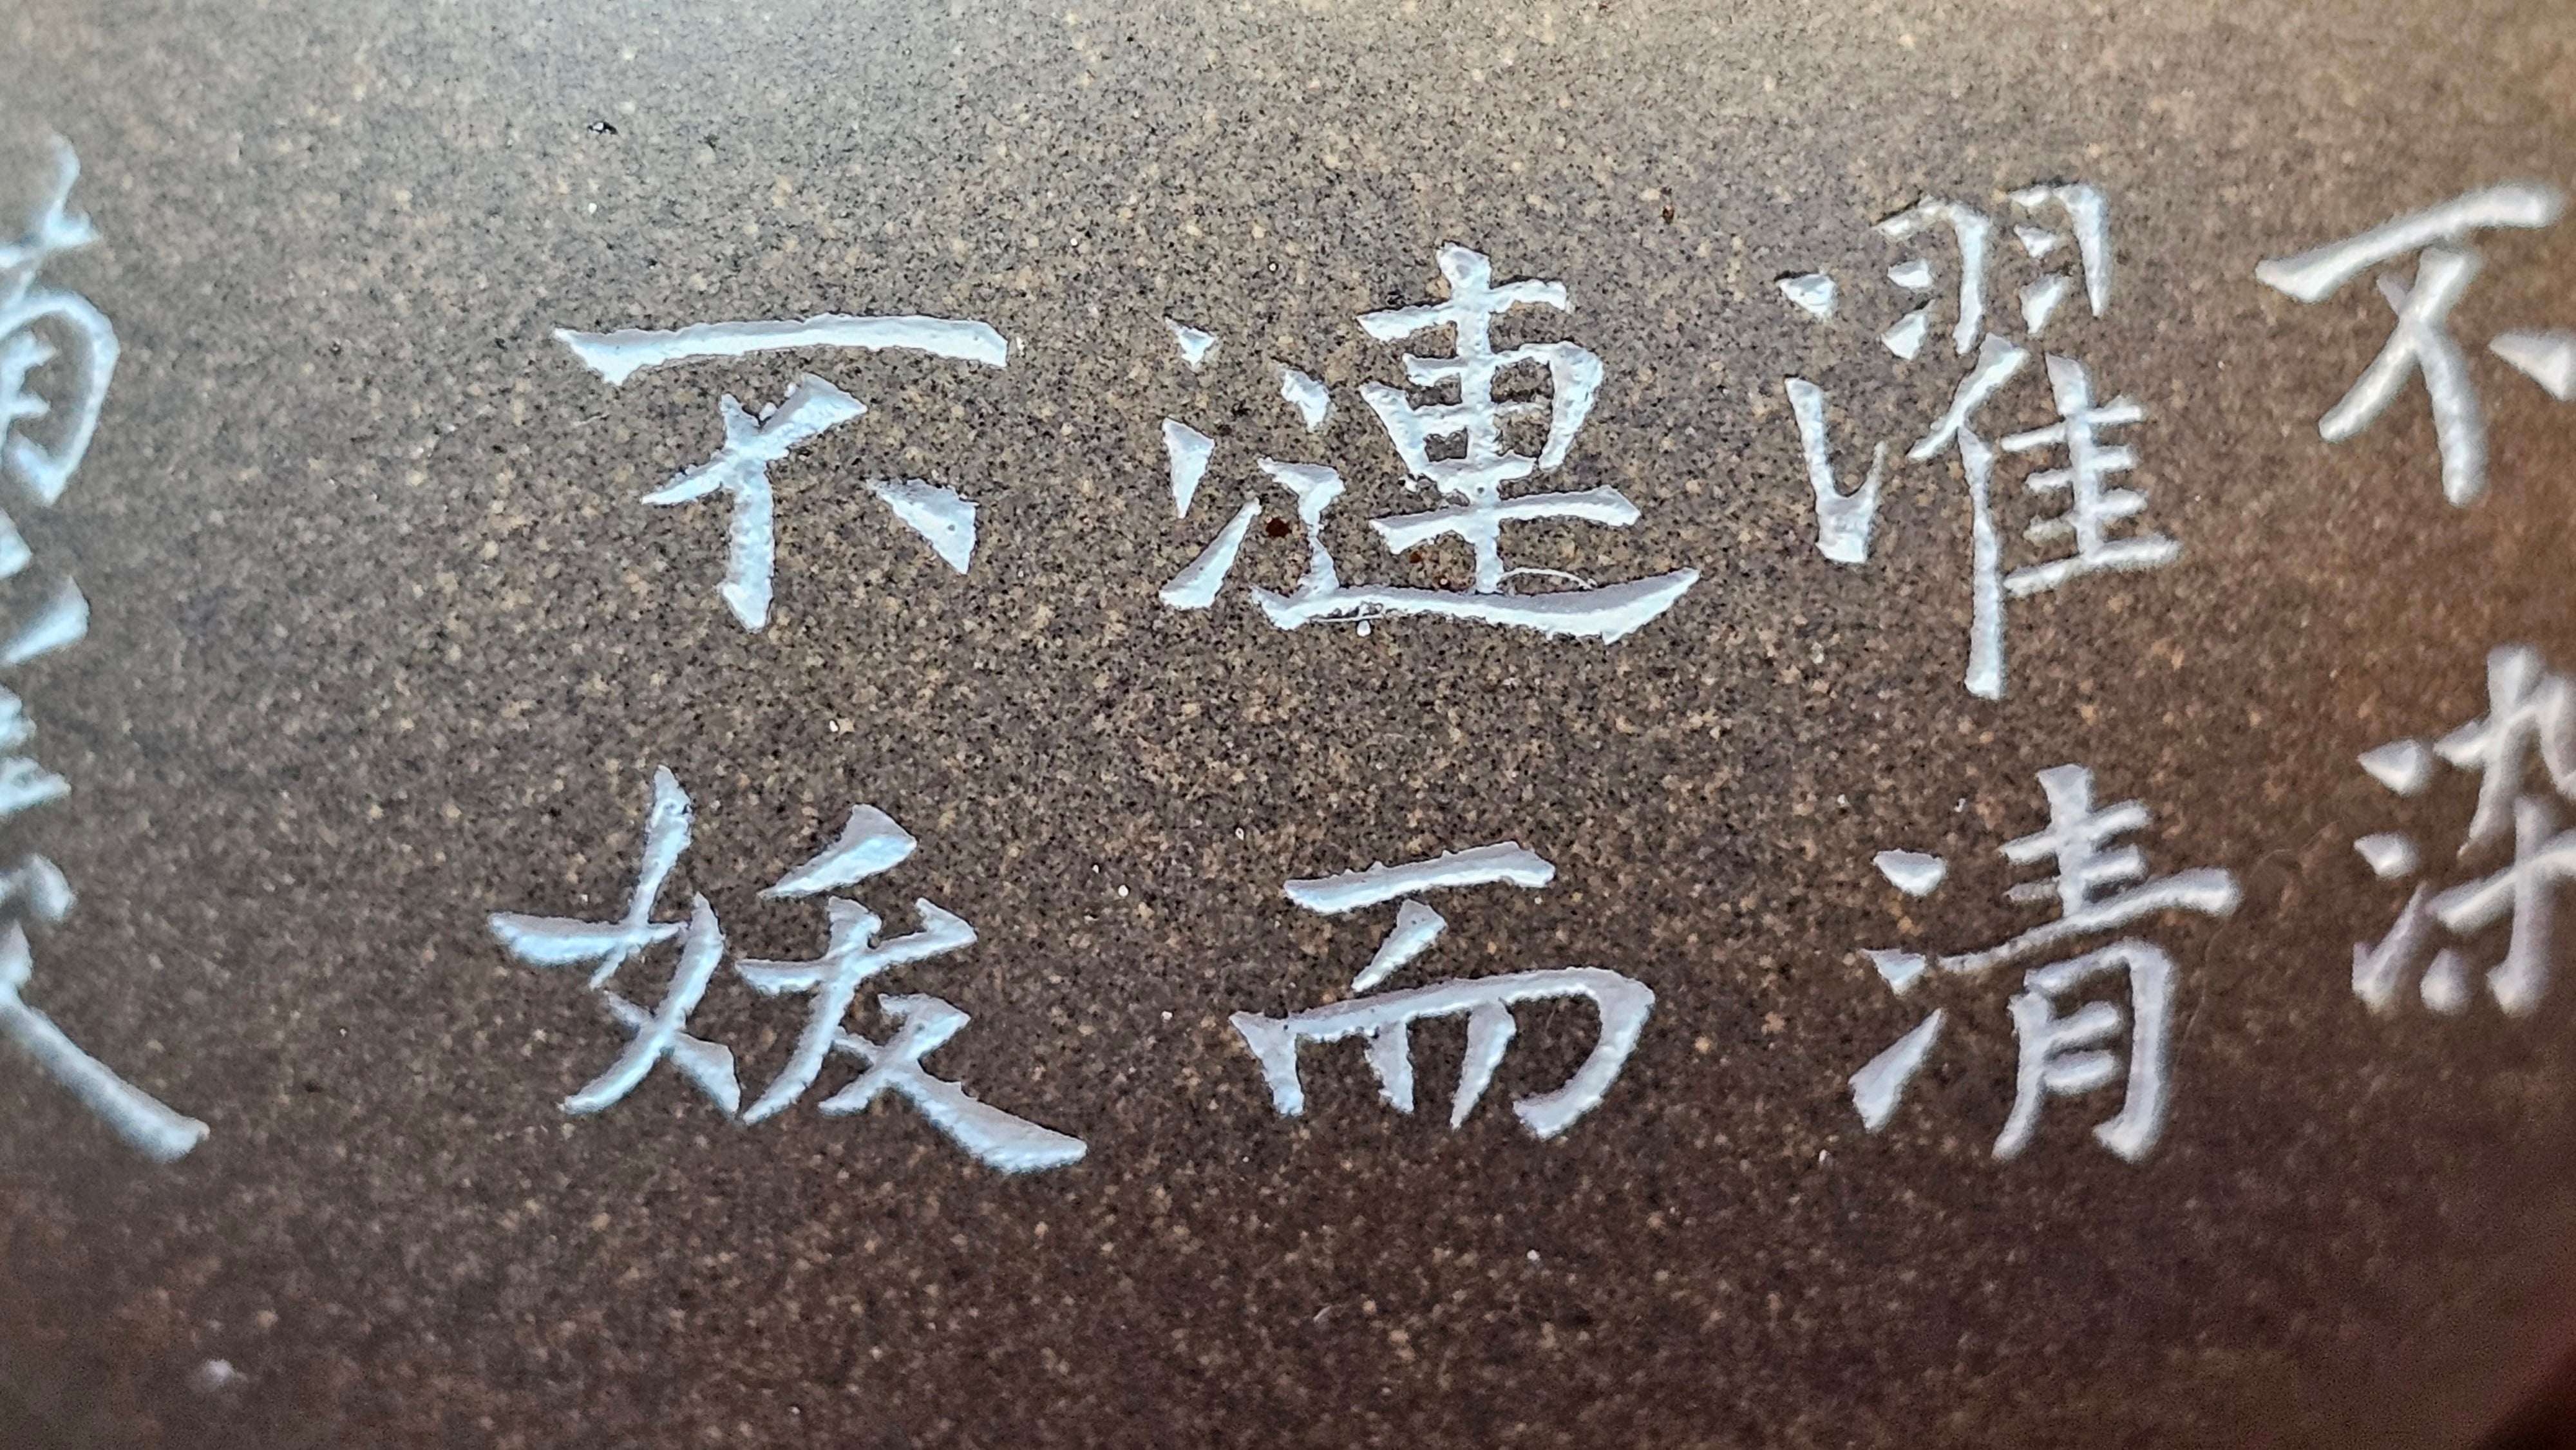 不染
濯清
漣而
不妖